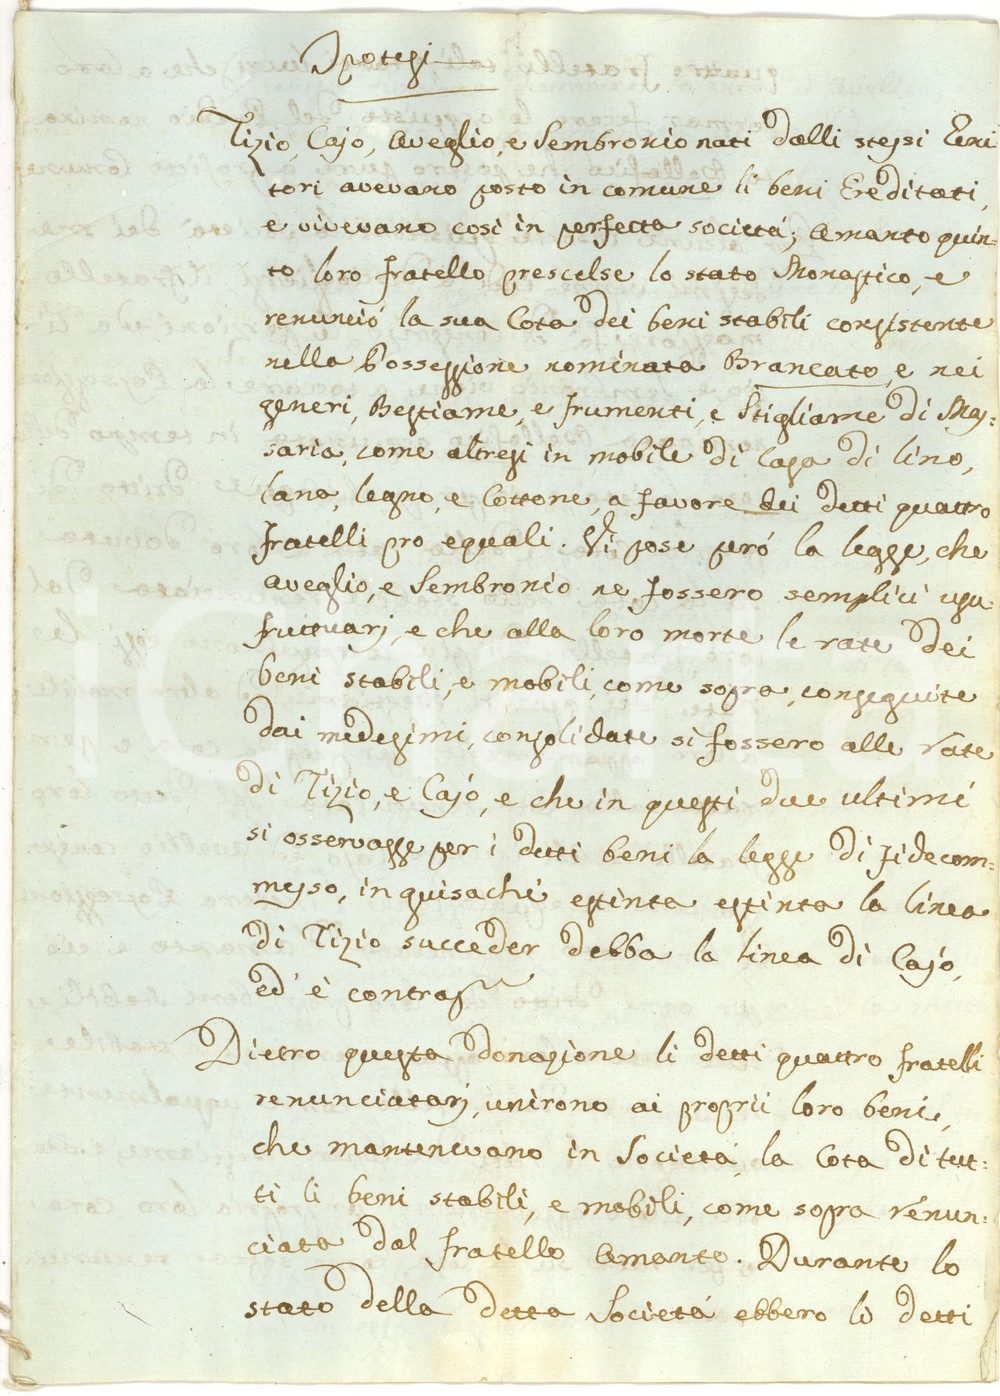 Ipotesi
Tizio, Cajo, Aveglio, e Sembronio nati dalli stessi Geni
tori avevano posto in comune li beni Ereditati,
e vivevano così in perfetta società; Amanto quin-
to loro fratello prescelse lo stato Monastico, e
renunciò la sua Cota dei beni stabili consistente
nella Possessione nominata Brancato, e nei
generi, Bestiame, e frumenti, e Stigliame di Mas=
saria, come altresi in mobile di Casa di lino,
lana, legno, e Cottone, a favore dei detti quattro
fratelli pro equali. Vi pose però la legge, che
aveglio, e Sembronio ne fossero semplici usu-
fruttuarj, e che alla loro morte le rate dei
beni stabili, e mobili, come sopra, conseguite
dai medesimi, consolidate si fossero alle rate
di Tizio, e Cajo, e che in questi due ultimi
si osservasse per i detti beni la legge di fidecom=
messo, in guisachè estinta estinta la linea
di Tizio succeder debba la linea di Cajo,
ed è contra
Dietro questa donazione li detti quattro fratelli
renunciatarj, unirono ai proprii loro beni,
che mantenevano in Società, la Cota di tut-
ti li beni stabili, e mobili, come sopra renun-
ciata dal fratello Amanto. Durante lo
stato della detta Società ebbero li detti